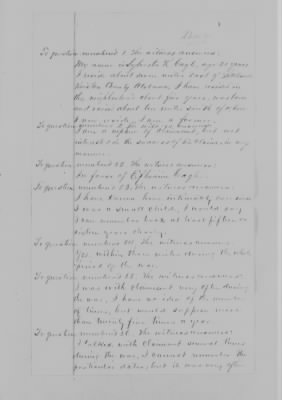 To question numbered 1. the witness answered:
My name is Sylvester K. Cagle, age 21 years
I reside about seven miles east of
County Alabama, I have resided in
the neighborhood about five years, was born
and raised about ten miles South of where
I now reside. I am a farmer.
To question numbered 2 the witness answered:
I am a nephew of claimant, but not
interested in the success of his claim in any
manner.
To question numbered 22. the witness answered:
In favor of Cagle.
To question numbered 23. the witness answered:
I have known him intimately ever since
I was a small child, I would say
I can remember back at least fifteen or
sixteen years clearly.
To question numbered 24. the witness answered:
Yes, within three miles during the whole
period of the war.
To question numbered 25. the witness answered:
I was with claimant very often during
the war, I have no idea of the number
of times, but would suppose more
than twenty five times a year.
To question numbered 26. the witness answered:
I talked with claimant several times
during the war, I cannot remember the
particular dates, but it was very often